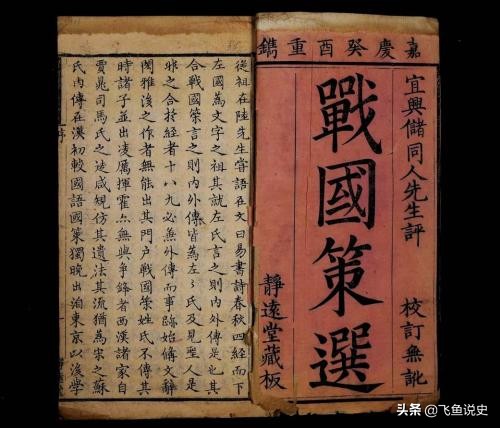 嘉慶癸酉重鐫
宜興儲同人先生評
校訂無訛
戰國策選
靜遠堂藏板
從祖在陸先生嘗語在文曰易書詩春秋四經而下
左國為文字之祖其就左氏言之則内外傳是也其
合戰國策言之則内外傳皆為左〻氏及見聖人是
非之合於經者十八九必兼外傳而事跡始備文辭
閎雅後之作者無能出其門戶戰國策姓氏不傳其
時諸子並出凌厲揮霍亦無與爭鋒者西漢諸家自
賈晁司馬氏之徒咸規仿其遺法其流猶為宋之蘇
氏内傳在漢初較國語國策獨晚出洎東京以後學
序
一
头条 @飞鱼说史